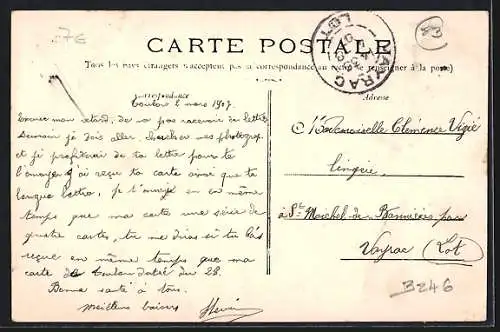 76
CARTE POSTALE
Tous les pays étrangers n'acceptent pas la correspondance au recto (se renseigner à la poste)
Correspondance
Adresse
VAYRAC
LOT
Toulon 2 mars 1907.
retard, de ne pas recevoir de lettre
Demain je dois aller chercher mes photograp.
et je profiterai de ta lettre pour te
l'envoyer j'ai reçu ta carte ainsi que ta
longue lettre, je t'envoie en même
temps que ma carte une série de
quatre cartes, tu me diras si tu l'as
reçue en même temps que ma
carte de Toulon datée du 28.
Bonne santé à tous.
meilleurs baisers
Mademoiselle Clémence Vizié
lingère,
à St Michel de Bannières par
Vayrac (Lot)
3246